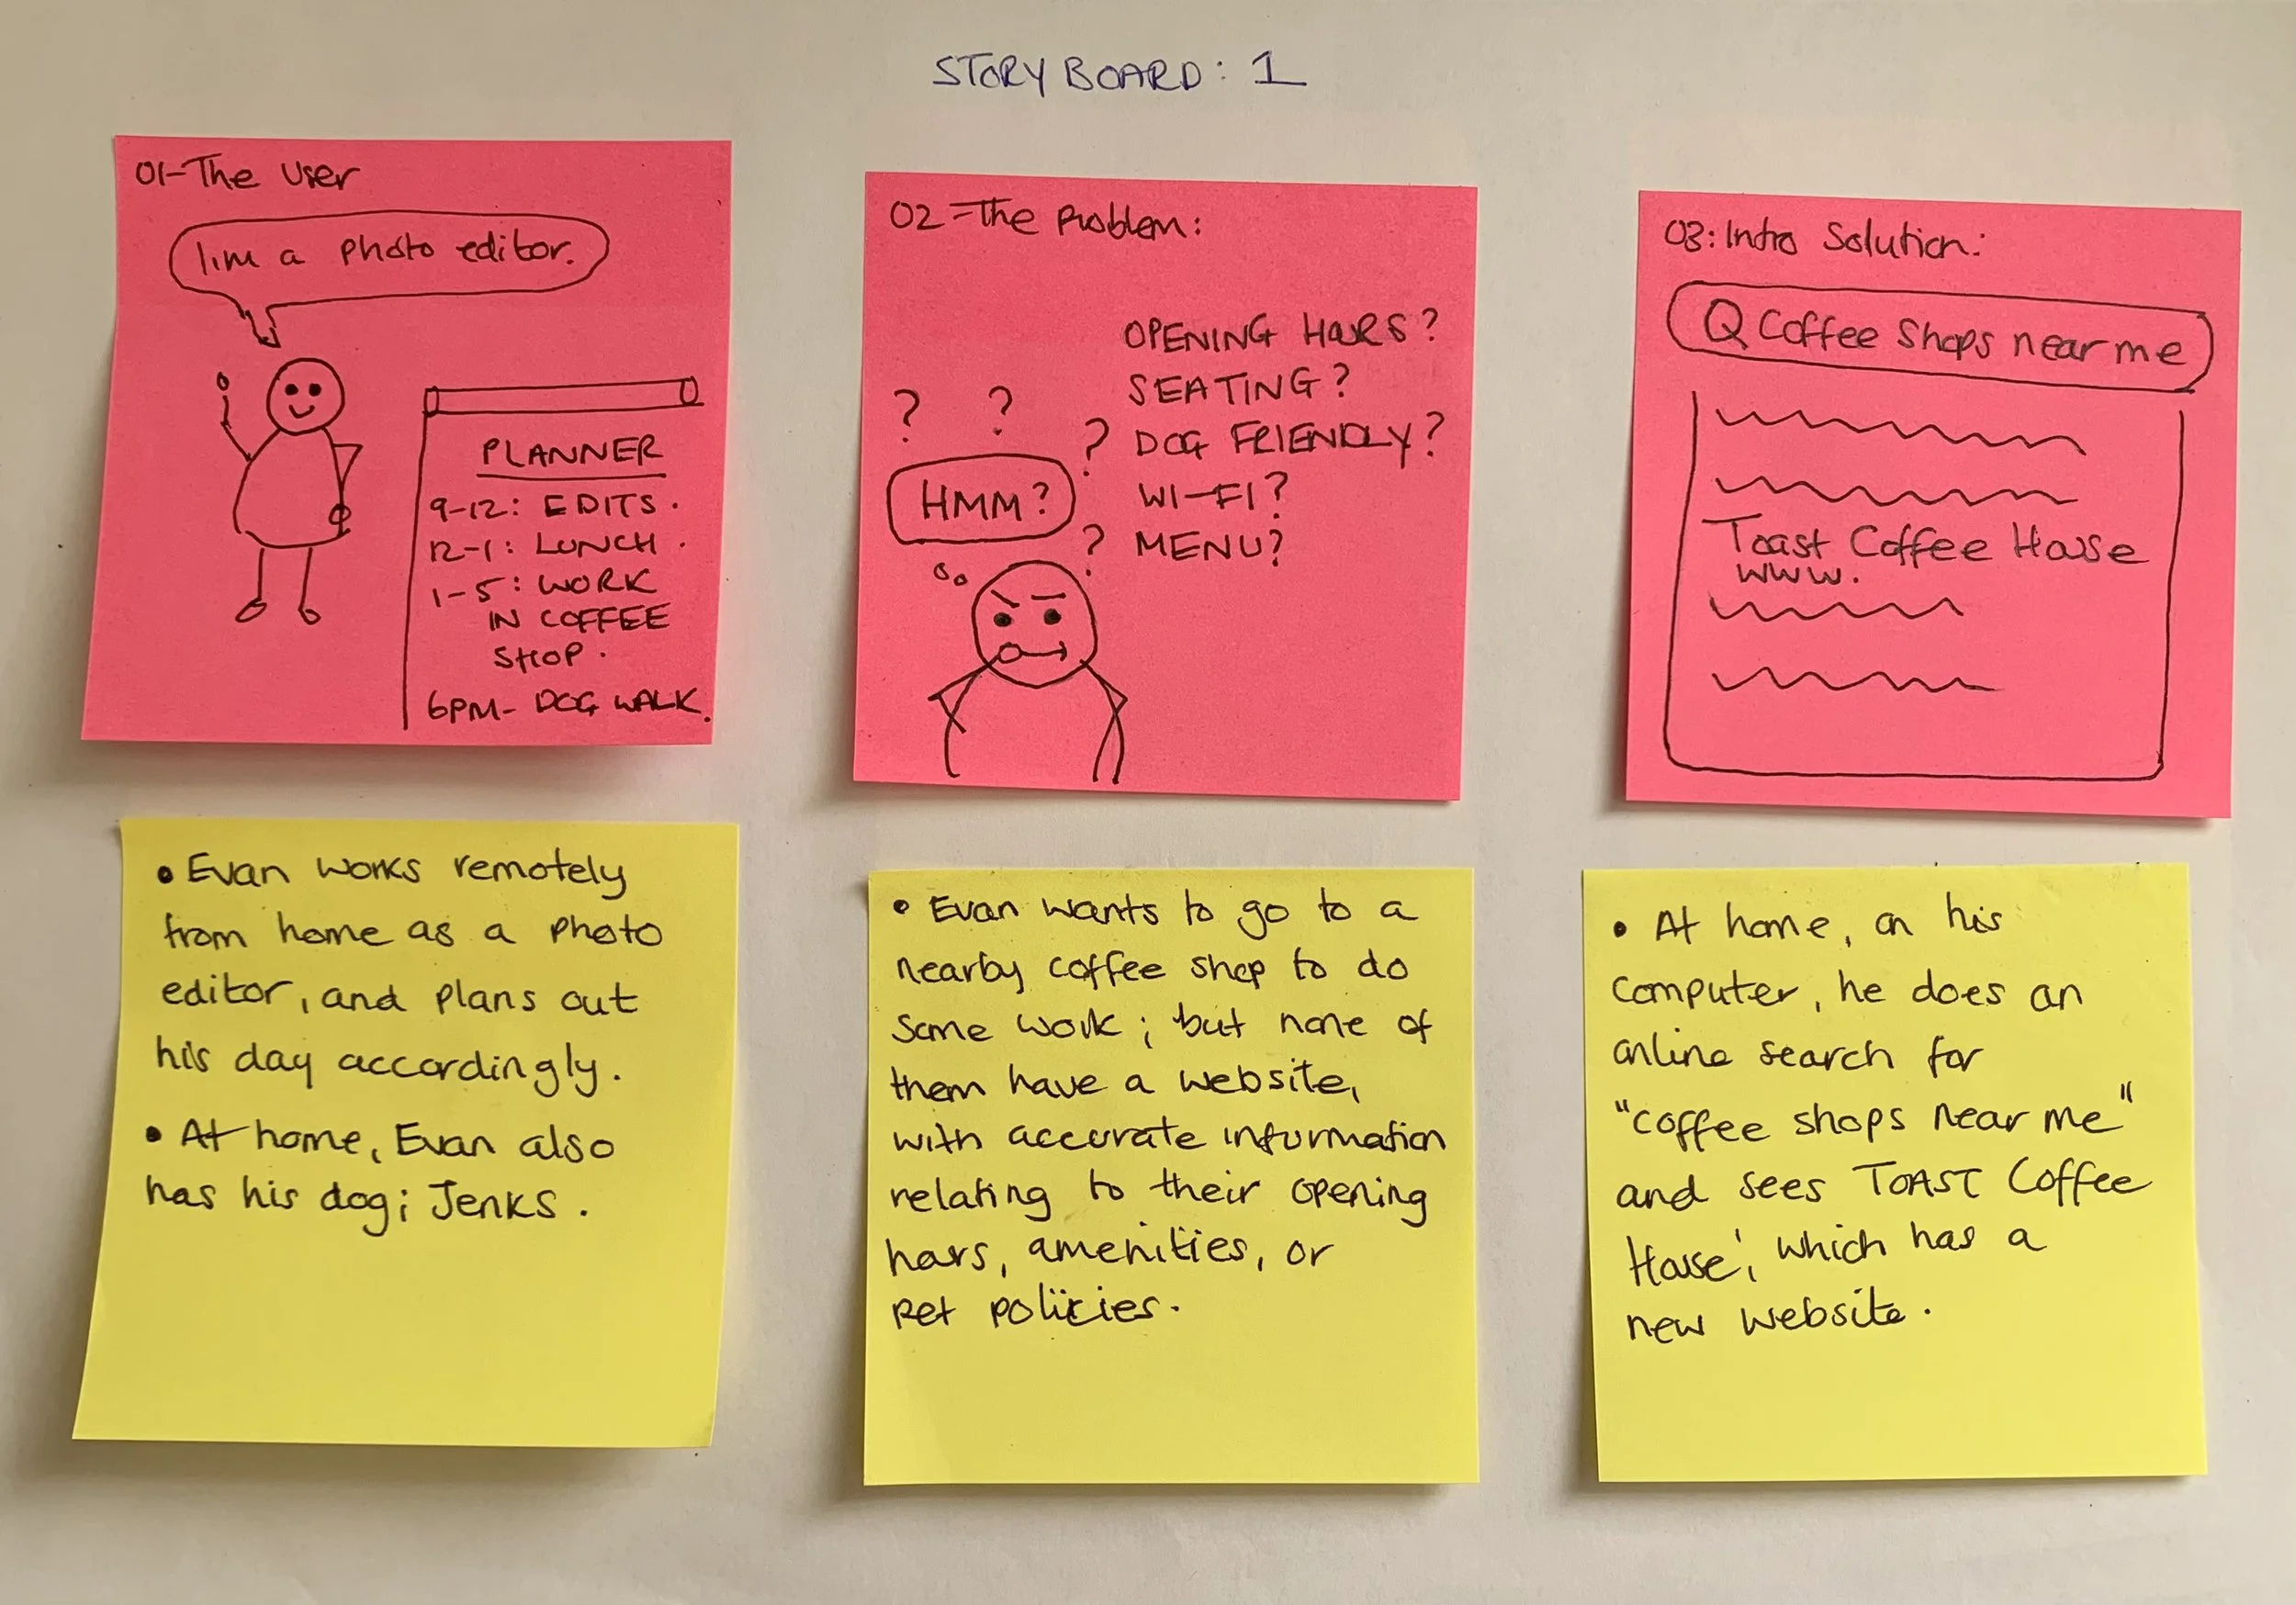 STORY BOARD: 1
01-The User
I'm a photo editor.
PLANNER
9-12: EDITS.
12-1: LUNCH.
1-5: WORK
IN COFFEE
SHOP.
6PM- DOG WALK.
02-The Problem:
OPENING HOURS?
SEATING?
? ? ? DOG FRIENDLY?
HMM? WI-FI?
? MENU?
03: Intro Solution:
Q Coffee Shops near me
Toast Coffee House
www.
• Evan works remotely
from home as a photo
editor, and plans out
his day accordingly.
• At home, Evan also
has his dog; Jenks.
• Evan wants to go to a
nearby coffee shop to do
some work; but none of
them have a website,
with accurate information
relating to their opening
hours, amenities, or
pet policies.
• At home, on his
computer, he does an
online search for
"coffee shops near me"
and sees TOAST Coffee
House', which has a
new website.